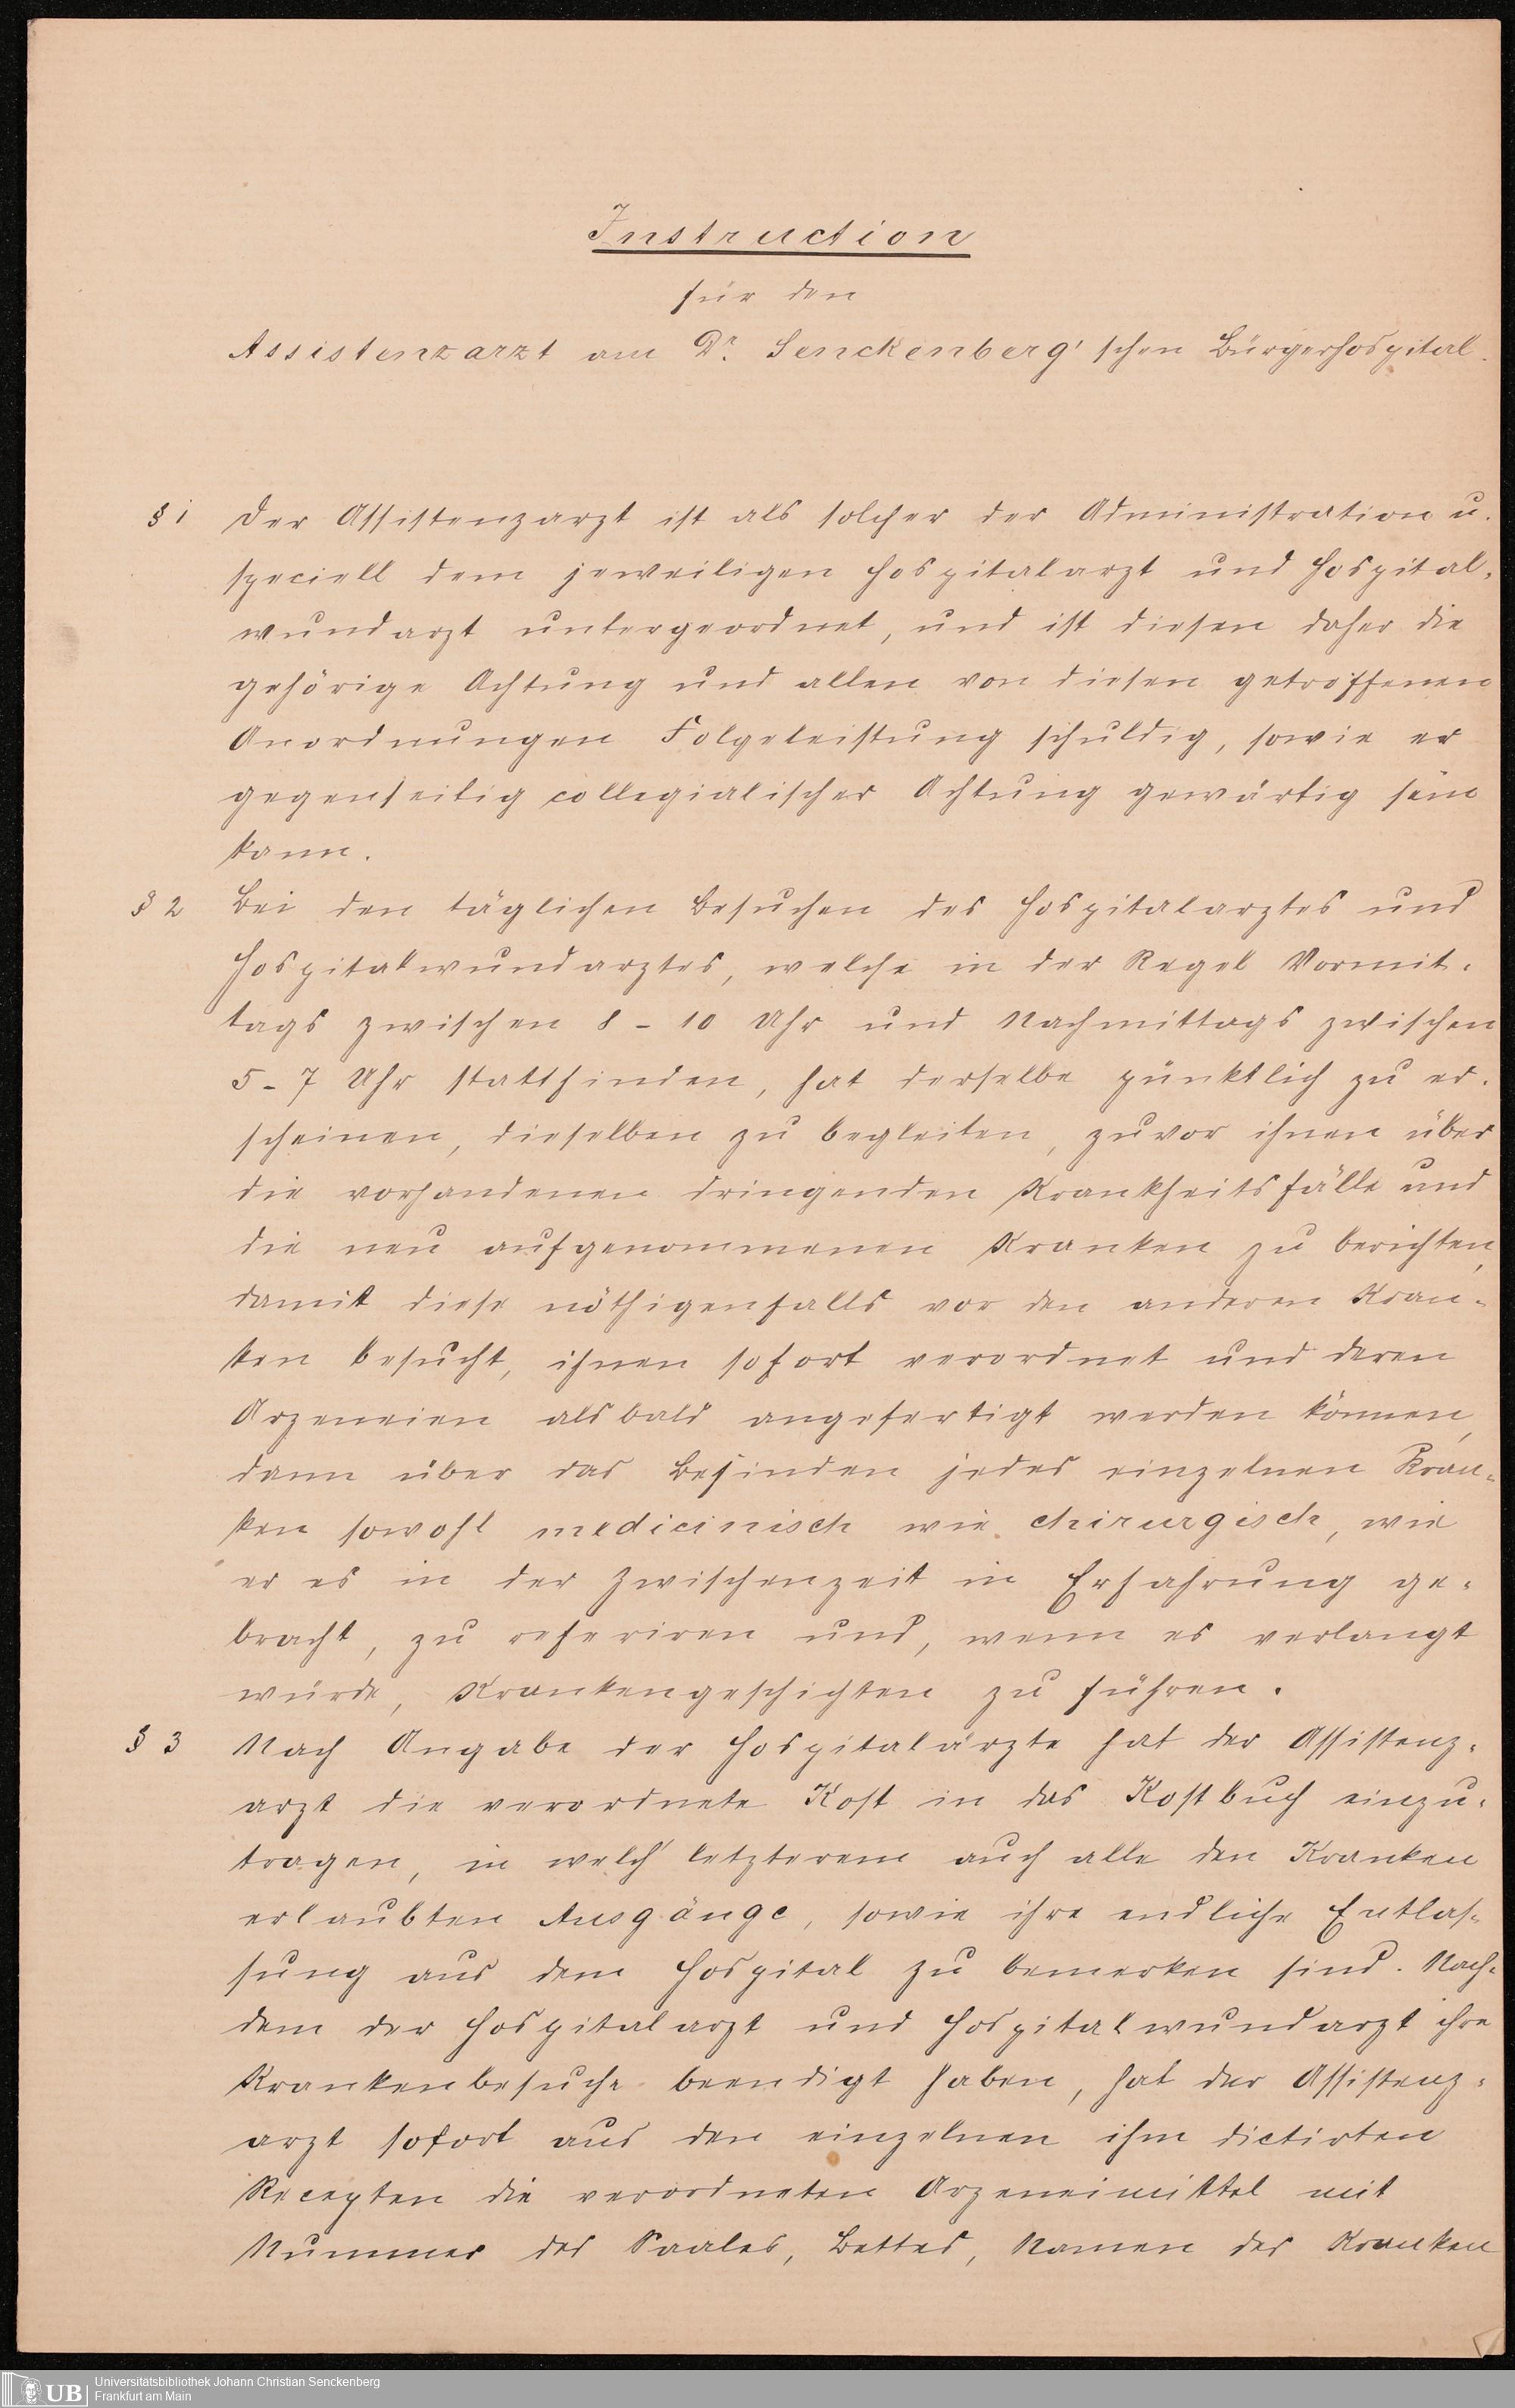 Instruction
für den
Assistenzarzt am Dr. Senckenberg'schen Bürgerhospital.
§ 1 Der Assistenzarzt ist als solcher der Administration u.
speciell dem jeweiligen Hospitalarzt und Hospital-
wundarzt untergeordnet, und ist diesen daher die
gehörige Achtung und allen von diesen getroffenen
Anordnungen Folgeleistung schuldig, sowie er
gegenseitig collegialischer Achtung gewärtig sein
kann.
§ 2 Bei den täglichen Besuchen des Hospitalarztes und
Hospitalwundarztes, welche in der Regel Vormit-
tags zwischen 8 - 10 Uhr und Nachmittags zwischen
5 - 7 Uhr stattfinden, hat derselbe pünktlich zu er-
scheinen, dieselben zu begleiten, zuvor ihnen über
die vorhandenen dringenden Krankheitsfälle und
die neu aufgenommenen Kranken zu berichten,
damit diese nöthigenfalls vor den anderen Kran-
ken besucht, ihnen sofort verordnet und deren
Arzeneien alsbald angefertigt werden können,
dann über das Befinden jedes einzelnen Kran-
ken sowohl medicinisch wie chirurgisch, wie
er es in der Zwischenzeit in Erfahrung ge-
bracht, zu referiren und, wenn es verlangt
würde, Krankengeschichten zu führen.
§ 3 Nach Angabe der Hospitalärzte hat der Assistenz-
arzt die verordnete Kost in das Kostbuch einzu-
tragen, in welch' letzterem auch alle den Kranken
erlaubten Ausgänge, sowie ihre endliche Entlas-
sung aus dem Hospital zu bemerken sind. Nach-
dem der Hospitalarzt und Hospitalwundarzt ihre
Krankenbesuche beendigt haben, hat der Assistenz-
arzt sofort aus den einzelnen ihm dictirten
Recepten die verordneten Arzeneimittel mit
Nummer des Saales, Bettes, Namen des Kranken
UB Universitätsbibliothek Johann Christian Senckenberg
Frankfurt am Main